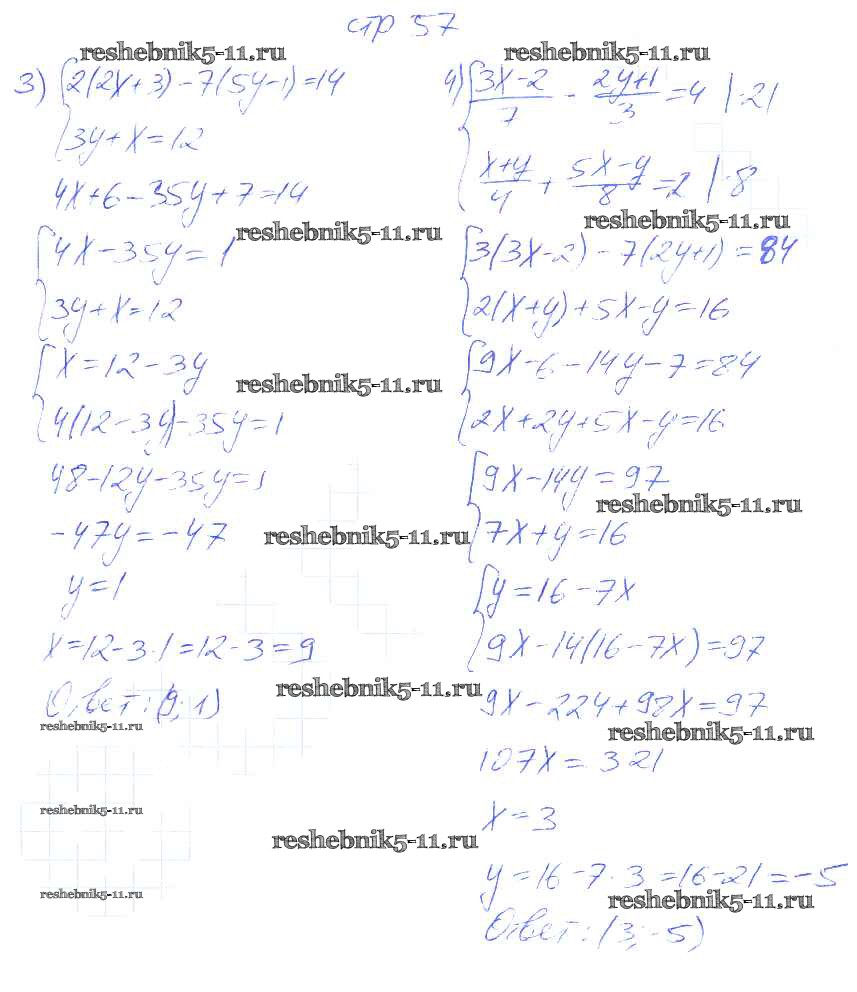 стр 57
reshebnik5-11.ru
3) { 2(2x+3)-7(5y-1)=14
3y+x=12
4x+6-35y+7=14
reshebnik5-11.ru
{ 4x-35y=1
3y+x=12
{ x=12-3y
reshebnik5-11.ru
4(12-3y)-35y=1
48-12y-35y=1
reshebnik5-11.ru
-47y=-47
y=1
x=12-3·1=12-3=9
reshebnik5-11.ru
Ответ: (9; 1)
reshebnik5-11.ru
reshebnik5-11.ru
reshebnik5-11.ru
reshebnik5-11.ru
reshebnik5-11.ru
4) { (3x-2)/7 - (2y+1)/3 = 4 |·21
(x+y)/4 + (5x-y)/8 = 2 |·8
reshebnik5-11.ru
{ 3(3x-2)-7(2y+1)=84
2(x+y)+5x-y=16
{ 9x-6-14y-7=84
2x+2y+5x-y=16
{ 9x-14y=97
reshebnik5-11.ru
7x+y=16
{ y=16-7x
9x-14(16-7x)=97
9x-224+98x=97
reshebnik5-11.ru
107x=321
x=3
y=16-7·3=16-21=-5
reshebnik5-11.ru
Ответ: (3; -5)